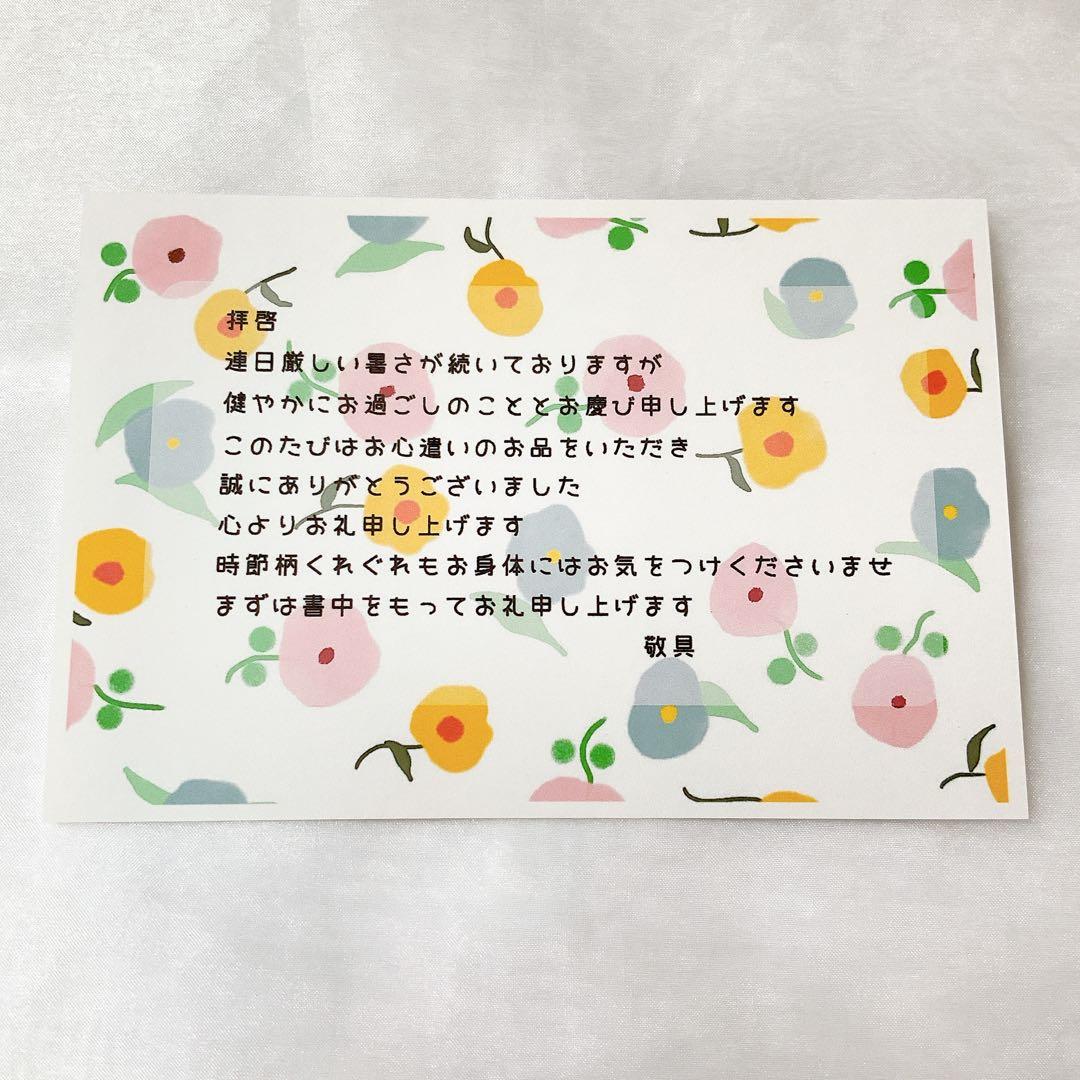 拝啓
連日厳しい暑さが続いておりますが
健やかにお過ごしのこととお慶び申し上げます
このたびはお心遣いのお品をいただき
誠にありがとうございました
心よりお礼申し上げます
時節柄くれぐれもお身体にはお気をつけくださいませ
まずは書中をもってお礼申し上げます
敬具